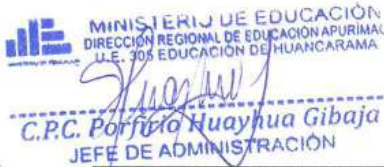 MINISTERIO DE EDUCACIÓN
DIRECCIÓN REGIONAL DE EDUCACIÓN APURIMAC
U.E. 305 EDUCACIÓN DE HUANCARAMA
C.P.C. Porfirio Huayhua Gibaja
JEFE DE ADMINISTRACIÓN